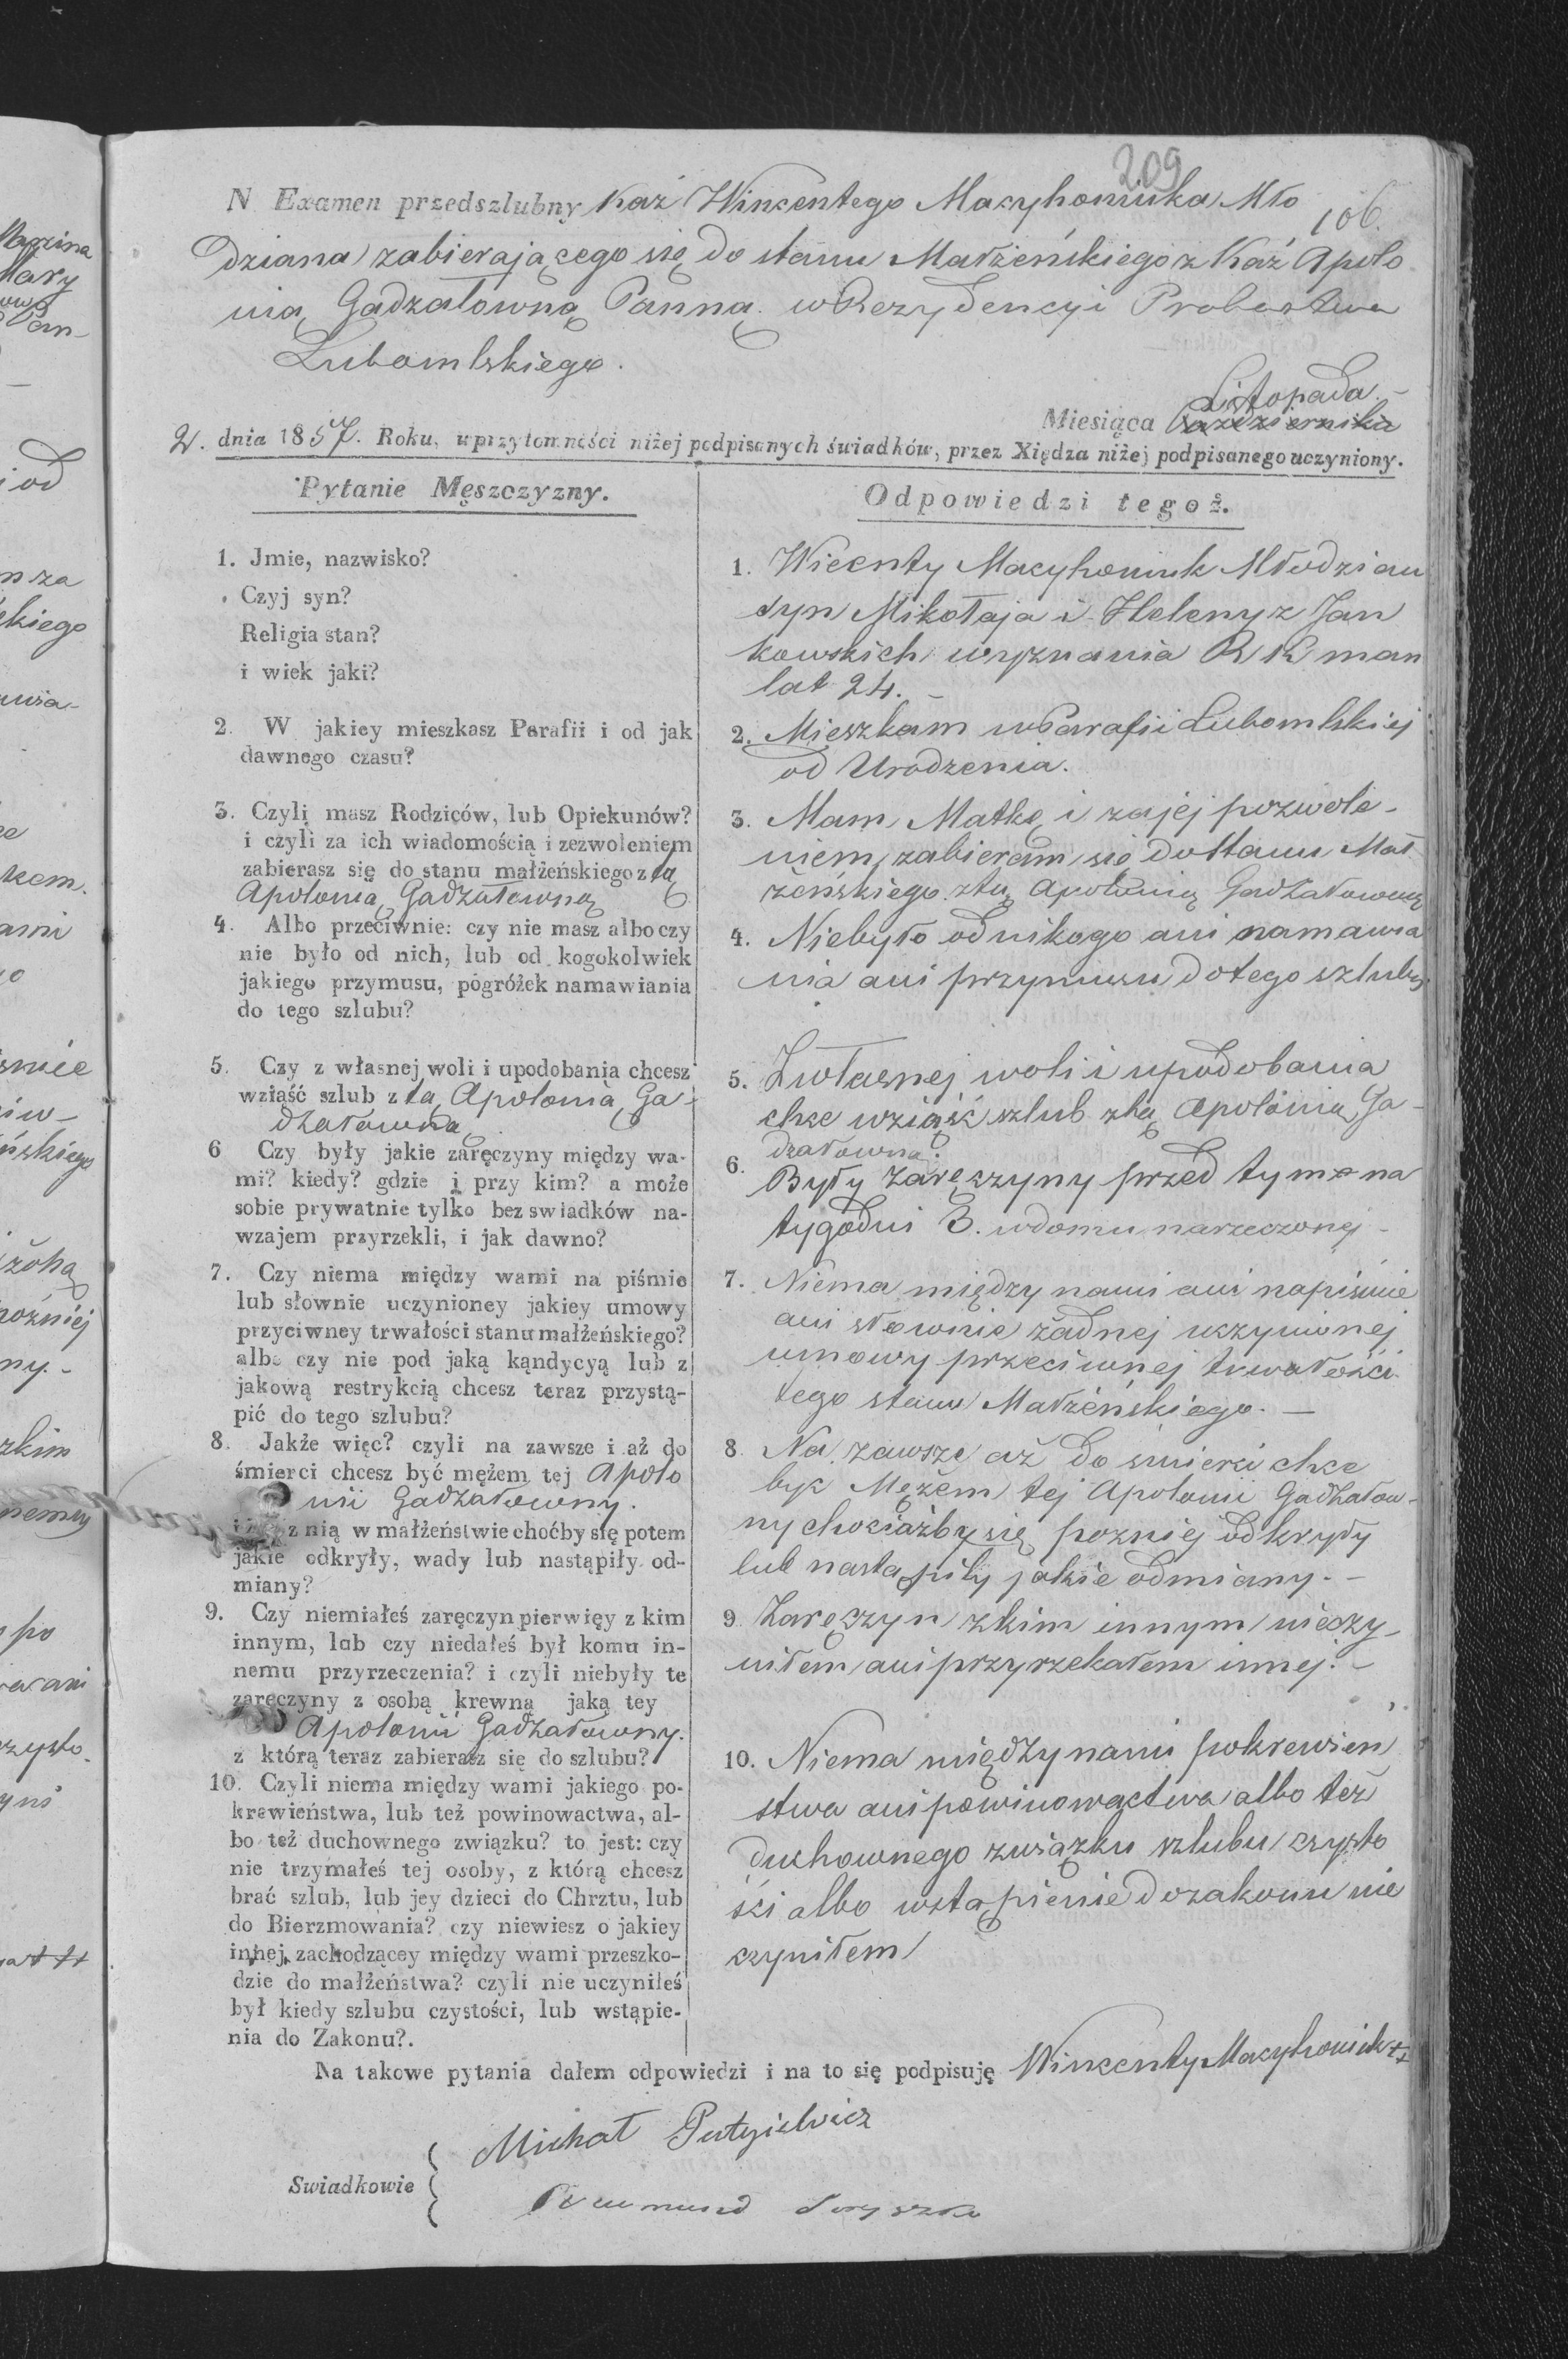 209
106.
N Examen przedszlubny Kaź Wincentego Macyhoniuka Mło
dziana zabierającego się do stanu Małżeńskiego z Kaź Apolo
nią Gadzałowną Panną. w Rezydencyi Probostwa
Lubomlskiego.
Listopada.-
Miesiąca Października
2. dnia 1857. Roku, w przytomności niżej podpisanych świadków, przez Xiędza niżej podpisanego uczyniony.
Pytanie Męszczyzny.
1. Jmie, nazwisko?
Czyj syn?
Religia stan?
i wiek jaki?
2. W jakiey mieszkasz Parafii i od jak
dawnego czasu?
3. Czyli masz Rodziców, lub Opiekunów?
i czyli za ich wiadomością i zezwoleniem
zabierasz się do stanu małżeńskiego z tą
Apolonią Gadzałowną
4. Albo przeciwnie: czy nie masz albo czy
nie było od nich, lub od kogokolwiek
jakiego przymusu, pogróżek namawiania
do tego szlubu?
5. Czy z własnej woli i upodobania chcesz
wziąść szlub z tą Apolonią Ga-
dzałowną
6 Czy były jakie zaręczyny między wa-
mi? kiedy? gdzie i przy kim? a może
sobie prywatnie tylko bez swiadków na-
wzajem przyrzekli, i jak dawno?
7. Czy niema między wami na piśmie
lub słownie uczynioney jakiey umowy
przyciwney trwałości stanu małżeńskiego?
albo czy nie pod jaką kąndycyą lub z
jakową restrykcią chcesz teraz przystą-
pić do tego szlubu?
8. Jakże więc? czyli na zawsze i aż do
śmierci chcesz być mężem tej Apolo
nii Gadzałowny.
z nią w małżeństwie choćby się potem
jakie odkryły, wady lub nastąpiły od-
miany?
9. Czy niemiałeś zaręczyn pierwięy z kim
innym, lub czy niedałeś był komu in-
nemu przyrzeczenia? i czyli niebyły te
zaręczyny z osobą krewną jaką tey
Apolonii Gadzałowny.
z którą teraz zabierasz się do szlubu?
10. Czyli niema między wami jakiego po-
krewieństwa, lub też powinowactwa, al-
bo też duchownego związku? to jest: czy
nie trzymałeś tej osoby, z którą chcesz
brać szlub, lub jey dzieci do Chrztu, lub
do Bierzmowania? czy niewiesz o jakiey
innej, zachodzącey między wami przeszko-
dzie do małżeństwa? czyli nie uczyniłeś
był kiedy szlubu czystości, lub wstąpie-
nia do Zakonu?.
Odpowiedzi tegoż.
1. Wicenty Macyhoniuk Młodzian
syn Mikołaja i Heleny z Jan
kowskich wyznania R K man
lat 24. -
2. Mieszkam w Parafii Lubomlskiej
od Urodzenia.
3. Mam Matkę i za jej pozwole-
niem zabieram się do stanu Mał
żeńskiego z tą Apolonią Gadzałowną
4. Niebyło od nikogo ani namawia
nia ani przymusu do tego szlubu
5. Z własnej woli i upodobania
chce wziąść szlub z tą Apolonią Ga-
dzałowną.
6. Były zaręczyny przed tym na
tygodni 3. w domu narzeczonej -
7. Niema między nami ani na piśmie
ani słownie żadnej uczynionej
umowy przeciwnej trwałości
tego stanu Małżeńskiego. -
8 Na zawsze aż do śmierci chce
być Mężem tej Apolonii Gadzałow-
ny chociażby się pozniej odkryły
lub nastąpiły jakie odmiany. -
9 Zaręczyn z kim innym nieczy-
niłem ani przyrzekałem innej. -
10. Niema między nami pokrewień
stwa ani powinowactwa albo też
duchownego związku szlubu czysto
ści albo wstąpienie do zakonu nie
czyniłem
Na takowe pytania dałem odpowiedzi i na to się podpisuję Wincenty Macyhoniuk
Swiadkowie
Michał